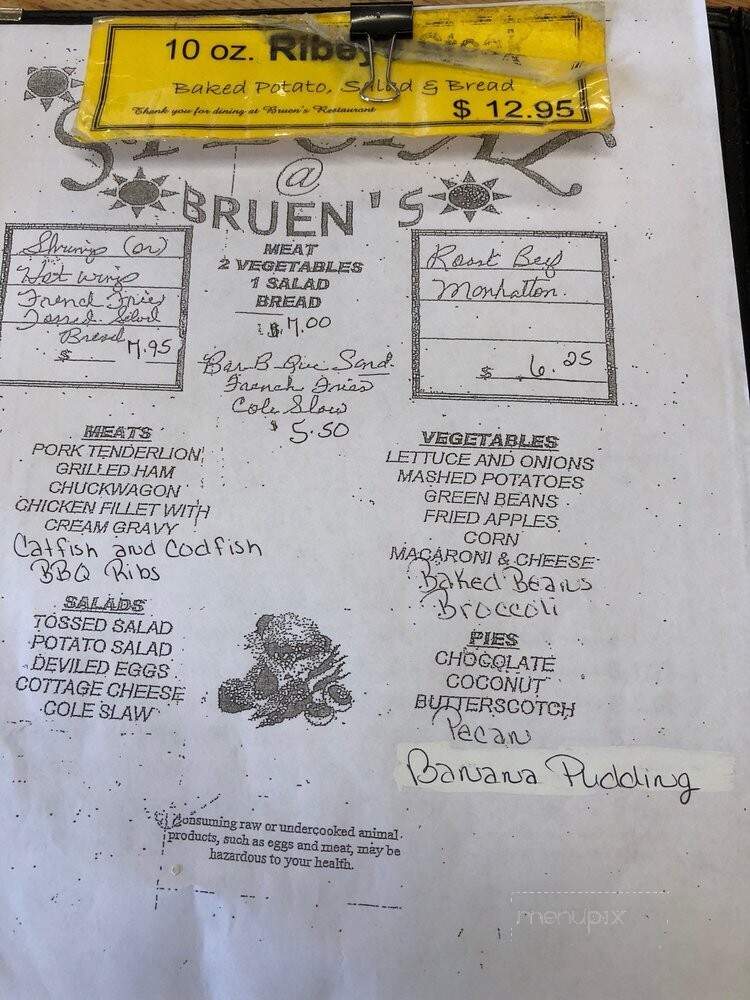 10 oz. Ribeye
Baked Potato, Salad & Bread
Thank you for dining at Bruen's Restaurant
$ 12.95
@
BRUEN'S
Shrimp (or)
Hot Wings
French Fries
Tossed Salad
Bread
$ 7.95
MEAT
2 VEGETABLES
1 SALAD
BREAD
$ 7.00
Bar-B-Que Sand.
French Fries
Cole Slaw
$ 5.50
Roast Beef
Manhatton
$ 6.25
MEATS
PORK TENDERLION
GRILLED HAM
CHUCKWAGON
CHICKEN FILLET WITH
CREAM GRAVY
Catfish and Codfish
BBQ Ribs
SALADS
TOSSED SALAD
POTATO SALAD
DEVILED EGGS
COTTAGE CHEESE
COLE SLAW
VEGETABLES
LETTUCE AND ONIONS
MASHED POTATOES
GREEN BEANS
FRIED APPLES
CORN
MACARONI & CHEESE
Baked Beans
Broccoli
PIES
CHOCOLATE
COCONUT
BUTTERSCOTCH
Pecan
Banana Pudding
Consuming raw or undercooked animal
products, such as eggs and meat, may be
hazardous to your health.
menupix